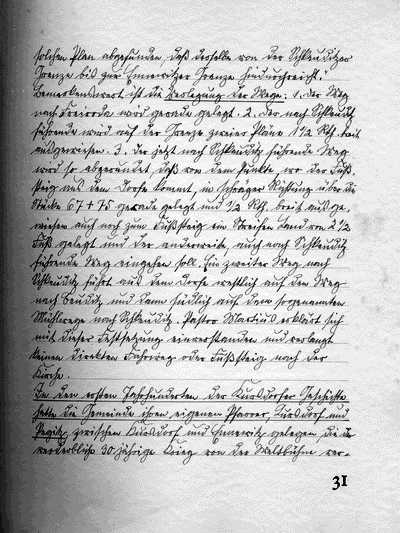 solchen Plan abgefunden, daß derselbe von der Schkeuditzer
Grenze bis zur Ennewitzer Grenze hindurchreicht."
Bemerkenswert ist die Verlegung der Wege: 1. der Weg
nach wird gerade gelegt. 2. der nach Schkeuditz
führende wird auf der Grenze zweier Pläne 1½ Rth. breit
ausgewiesen. 3. der jetzt nach Schkeuditz führende Weg
wird so abgerundet, daß von dem Punkte, wo der Fuß-
steig aus dem Dorfe kommt, in schräger Richtung über die
Stücke 67 + 75 gerade gelegt und ½ Rth. breit ausge-
wiesen auch noch zum Fußsteig ein Streifen Land von 2½
Fuß gelegt und der anderweite auch nach Schkeuditz
führende Weg eingehen soll. Ein zweiter Weg nach
Schkeuditz führt aus dem Dorfe westlich auf den Weg
nach Beuditz und dann südlich auf dem sogenannten
Mühlwege nach Schkeuditz. Pastor Martius erklärt sich
mit dieser Festsetzung einverstanden und verlangt
keinen direkten Fahrweg oder Fußsteig nach der
Kirche.
In den ersten Jahrhunderten der Kursdorfer Geschichte
hatte die Gemeinde ihren eigenen Pfarrer, Kursdorf und
zwischen Kursdorf und Ennewitz gelegen, die der
verderbliche 30-jährige Krieg von der Weltbühne ver-
31